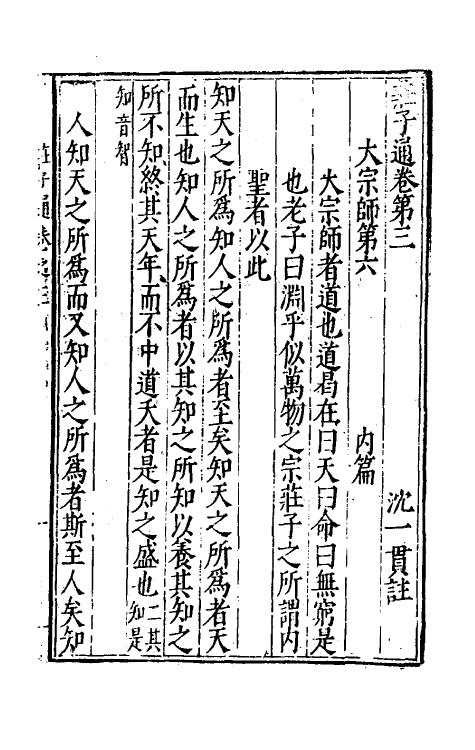 莊子通卷第三　　沈一貫註
大宗師第六　　內篇
大宗師者道也道曷在曰天曰命曰無窮是
也老子曰淵乎似萬物之宗莊子之所謂內
聖者以此
知天之所爲知人之所爲者至矣知天之所爲者天
而生也知人之所爲者以其知之所知以養其知之
所不知終其天年而不中道夭者是知之盛也二其知是
知音智
人知天之所爲而又知人之所爲者斯至人矣知
莊子通卷之三